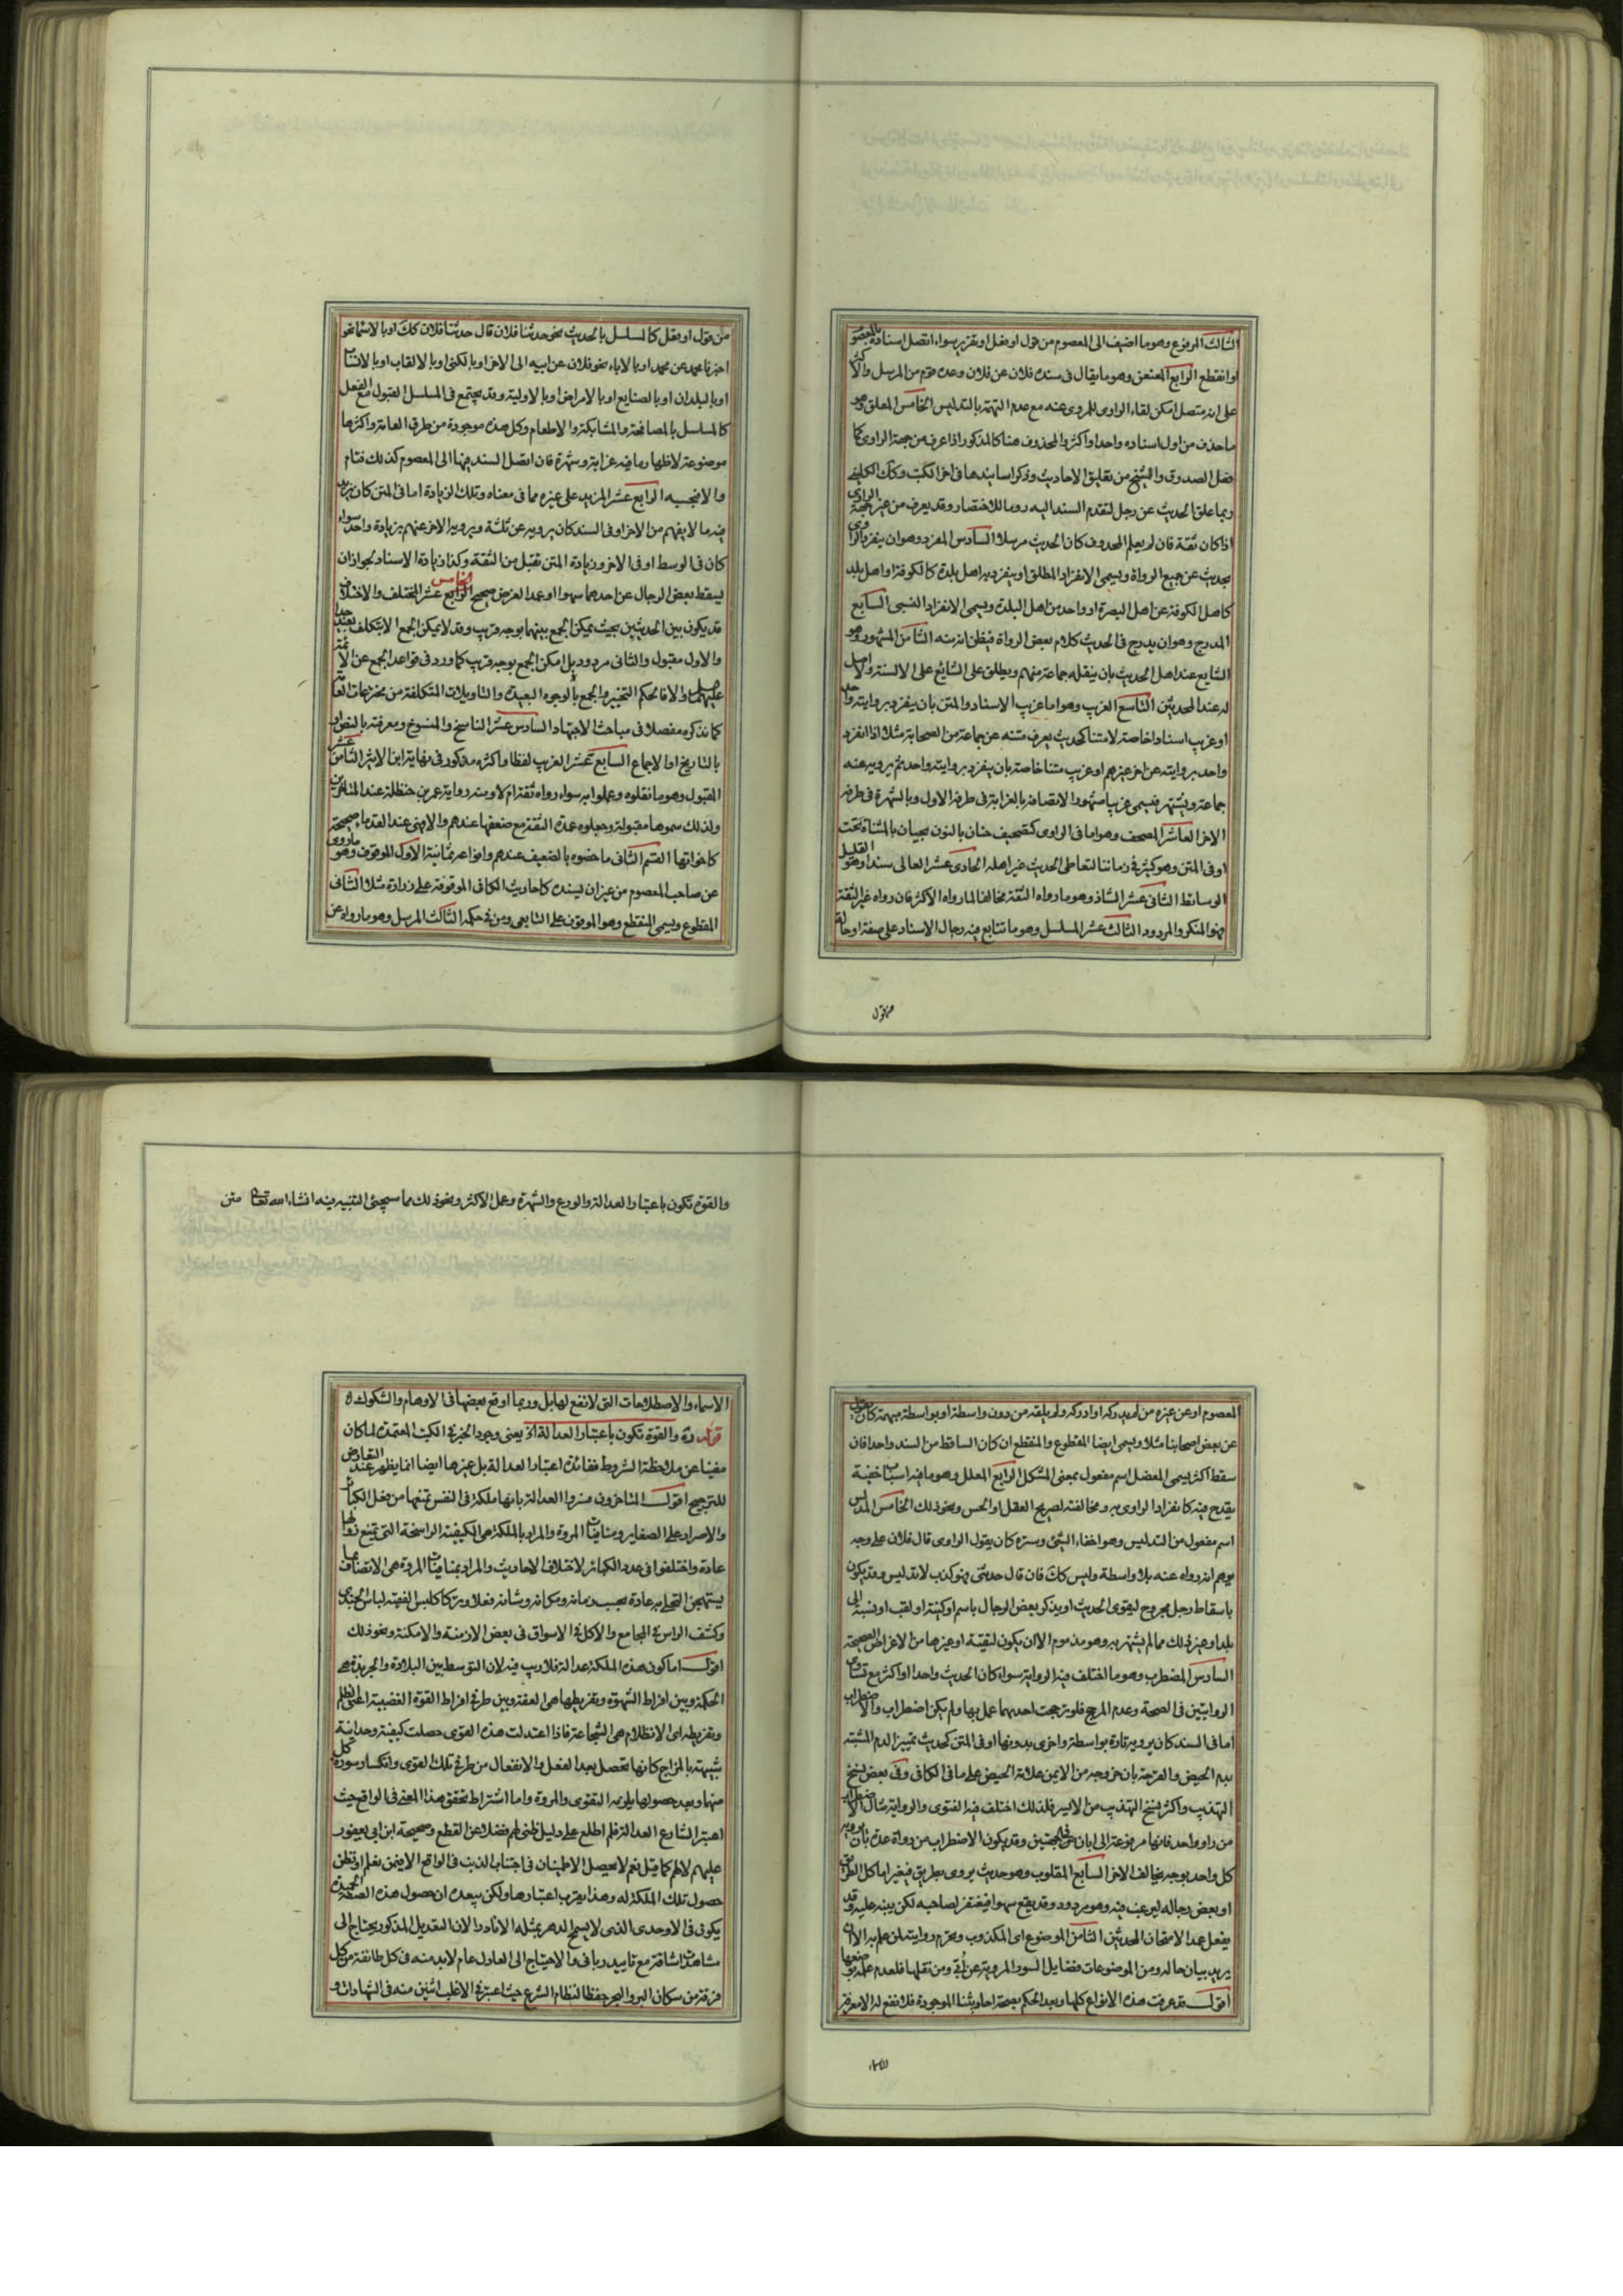 الثالث المرفوع وهو ما اضيف الى المعصوم من قول او فعل او تقرير سواء اتصل اسناده بالمعصوم
او انقطع الرابع المعنعن وهو ما يقال فى سنده فلان عن فلان وعده قوم من المرسل والاكثر
على انه متصل امكن لقاء الراوى للمروى عنه مع عدم التهمة بالتدليس الخامس المعلق وهو
ما حذف من اول اسناده واحد او اكثر والمحذوف هنا كالمذكور اذا عرف من جهة الراوى كما
فعل الصدوق والشيخ من تعليق الاحاديث وذكر اسانيدها فى اخر الكتب وكك الكلينى
ربما علق الحديث عن رجل لتقدم السند اليه روما للاختصار وقد يعرف من غير جهة الراوى
اذا كان ثقة فان لم يعلم المحذوف كان الحديث مرسلا السادس المفرد وهو ان ينفرد الراوى
بحديث عن جميع الرواة ويسمى الانفراد المطلق او ينفرد به اهل بلدة كالكوفة او اهل بلد
كاهل الكوفة عن اهل البصرة او واحد من اهل البلدة ويسمى الانفراد النسبى السابع
المدرج وهو ان يدرج فى الحديث كلام بعض الرواة فيظن انه منه الثامن المشهور وهو
الشايع عند اهل الحديث بان ينقله جماعة منهم ويطلق على الشايع على الالسنة ولا اصل
له عند المحدثين التاسع الغريب وهو اما غريب الاسناد والمتن بان ينفرد بروايته واحد
او غريب اسنادا خاصة لا متنا كحديث يعرف متنه عن جماعة من الصحابة مثلا اذا انفرد
واحد بروايته عن اخر غيرهم او غريب متنا خاصة بان ينفرد بروايته واحد ثم يرويه عنه
جماعة ويشتهر فيسمى غريبا مشهورا لاتصافه بالغرابة فى طرفه الاول وبالشهرة فى طرفه
الاخر العاشر المصحف وهو اما فى الراوى كتصحيف حنان بالنون بحيان بالمثناة تحت
او فى المتن وهو كثير فى زماننا لتعاطى الحديث غير اهله الحادى عشر العالى سندا وهو القليل
الوسائط الثانى عشر الشاذ وهو ما رواه الثقة مخالفا لما رواه الاكثر فان رواه غير الثقة
فهو المنكر والمردود الثالث عشر المسلسل وهو ما تتابع فيه رجال الاسناد على صفة او حالة
من قول
من قول او فعل كالمسلسل بالحديث نحو حدثنا فلان قال حدثنا فلان كك او بالاسماء نحو
اخبرنا محمد عن محمد او بالاباء نحو فلان عن ابيه الى الاخر او بالكنى او بالالقاب او بالانساب
او بالبلدان او بالصنايع او بالامراض او بالاولية وقد يجتمع فى المسلسل القبول مع الفعل
كالمسلسل بالمصافحة والمشابكة والاطعام وكل هذه موجودة من طرق العامة واكثرها
موضوعة لاظهار ما فيه غرابة وشهرة فان اتصل السند بها الى المعصوم كذلك فتام
والا فبحسبه الرابع عشر المزيد على غيره مما فى معناه وتلك الزيادة اما فى المتن كان يزيد
فيه ما لا يفهم من الاخر او فى السند كان يرويه عن ثلثة ويرويه الاخر عنهم بزيادة واحد سواء
كان فى الوسط او فى الاخر وزيادة المتن تقبل من الثقة وكذا زيادة الاسناد لجواز ان
يسقط بعض الرجال عن احدهما سهوا او عمدا لغرض صحيح الخامس الرابع عشر المختلف والاختلاف
قد يكون بين الحديثين بحيث يمكن الجمع بينهما بوجه قريب وقد لا يمكن الجمع الا بتكلف بعيد جدا
والاول مقبول والثانى مردود بل امكن الجمع بوجه قريب كما ورد فى قواعد الجمع عن الائمة
عليهم السلام والا فالحكم التخيير والجمع بالوجوه البعيدة والتاويلات المتكلفة من مخترعات العامة
كما نذكره مفصلا فى مباحث الاجتهاد السادس عشر الناسخ والمنسوخ ومعرفته بالنص او
بالتاريخ او الاجماع السابع عشر الغريب لفظا واكثره مذكور فى نهاية ابن الاثير الثامن عشر
المقبول وهو ما نقلوه وعملوا به سواء رواه ثقة ام لا ومنه رواية عمر بن حنظلة عند المتاخرين
ولذلك سموها مقبولة وجعلوه عمدة التفقه مع ضعفها عندهم والا فهى عند القدماء صحيحة
كاخواتها القسم الثانى ما خصوه بالضعيف عندهم وانواعه ثمانية الاول الموقوف وهو ما روى
عن صاحب المعصوم من غير ان يسنده كاحاديث الكافى الموقوفة على زرارة مثلا الثانى
المقطوع ويسمى المنقطع وهو الموقوف على التابعى ومن فى حكمه الثالث المرسل وهو ما رواه عن
المعصوم او عن غيره من لم يدركه او ادركه ولم يلقه من دون واسطة او بواسطة مبهمة كان يقول
عن بعض اصحابنا مثلا ويسمى ايضا المقطوع والمنقطع ان كان الساقط من السند واحدا فان
سقط اكثر يسمى المعضل اسم مفعول بمعنى المشكل الرابع المعلل وهو ما فيه اسباب خفية
يقدح فيه كانفراد الراوى به ومخالفته لصريح العقل او الحس ونحو ذلك الخامس المدلس
اسم مفعول من التدليس وهو اخفاء الشئ وستره كان يقول الراوى قال فلان على وجه
يوهم انه رواه عنه بلا واسطة وليس كك فان قال حدثنى فهو كذب لا تدليس وقد يكون
باسقاط رجل مجروح ليقوى الحديث او بذكر بعض الرجال باسم او كنية او لقب او نسبة الى
بلد او غير ذلك مما لم يشتهر به وهو مذموم الا ان يكون لتقية او غيرها من الاغراض الصحيحة
السادس المضطرب وهو ما اختلف فيه الرواية سواء كان الحديث واحدا او اكثر مع تساوى
الروايتين فى الصحة وعدم المرجح فلو ترجحت احديهما عمل بها ولم يكن اضطراب والاضطراب
اما فى السند كان يرويه تارة بواسطة واخرى بدونها او فى المتن كحديث تمييز الدم المشتبه
بدم الحيض والقرحة بان خروجه من الايمن علامة الحيض على ما فى الكافى وفى بعض نسخ
التهذيب واكثر نسخ التهذيب من الايسر فلذلك اختلف فيه الفتوى والرواية مثال الاضطراب
من راو واحد فانها مرفوعة الى ابان فى الجهتين وقد يكون الاضطراب من رواة عدة بان يرويه
كل واحد بوجه يخالف الاخر السابع المقلوب وهو حديث يروى بطريق فيغير اما كل الطريق
او بعض رجاله ليرغب فيه وهو مردود وقد يقع سهوا فيغتفر لصاحبه لكن ينبه عليه وقد
يفعل عمدا لامتحان المحدثين الثامن الموضوع اى المكذوب ويحرم روايته لمن علم به الا ان
يريد بيان حاله ومن الموضوعات فضايل السور المروية عن أبى ومن نقلها فلعدم علمه بوضعها
اقول قد عرفت هذه الانواع كلها وبعد الحكم بصحة احاديثنا الموجودة فلا نفع له الا معرفة
الاسماء
والقوة تكون باعتبار العدالة والورع والشهرة وعمل الاكثر ونحو ذلك مما سيجئ التنبيه فيه انشاء الله تعالى متن
الاسماء والاصطلاحات التى لا نفع لها بل وربما اوقع بعضها فى الاوهام والشكوك
قوله ره والقوة تكون باعتبار العدالة الخ يعنى وجود الخبر فى الكتب المعتمدة لما كان
مغنيا عن ملاحظة الشروط ففائدة اعتبار العدالة بل غيرها ايضا انما يظهر عند التعارض
للترجيح اقول المتاخرون فسروا العدالة بانها ملكة فى النفس تمنعها من فعل الكباير
والاصرار على الصغاير ومنافيات المروة والمراد بالملكة هى الكيفية الراسخة التى يمتنع زوالها
عادة واختلفوا فى عدد الكبائر لاختلاف الاحاديث والمراد بمنافيات المروة هى الاتصاف بما
يستهجن التحلى به عادة بحسب زمانه ومكانه وشانه فعلا وتركا كلبس الفقيه لباس الجندى
وكشف الراس فى المجامع والاكل فى الاسواق فى بعض الازمنة والامكنة ونحو ذلك
اقول اما كون هذه الملكة عدالة فلا ريب فيه لان التوسط بين البلادة والجربزة هى
الحكمة وبين افراط الشهوة وتفريطها هى العفة وبين طرفى افراط القوة الغضبية اعنى الظلم
وتفريطه اى الانظلام هى الشجاعة فاذا اعتدلت هذه القوى حصلت كيفية وحدانية
شبيهة بالمزاج كانها تحصل بعد الفعل والانفعال من طرفى تلك القوى وانكسار سورة كل
منها وبعد حصولها يلزمه التقوى والمروة واما اشتراط تحقق هذا المعنى فى الواقع حيث
اعتبر الشارع العدالة فلم اطلع على دليل ظنى لهم فضلا عن القطع وصحيحة ابن ابى يعفور
عليهم لا لهم كما قيل نعم لا يحصل الاطمينان فى اجتناب الذنب فى الواقع الا فيمن نعلم او نظن
حصول تلك الملكة له وهذا يقرب اعتبارها ولكن يبعده ان حصول هذه الصفة الحميدة
يكون فى الاوحدى الذى لا يسمح الدهر بمثله الا نادرا لان التعديل المذكور يحتاج الى
مشاهدات شاقة مع تاييد ربانى والاحتياج الى العادل عام لا بد منه فى كل طائفة من كل
فرقة من سكان البر والبحر حفظا لنظام الشرع حيث اعتبر فى الاغلب اثنين منه فى الشهادات و